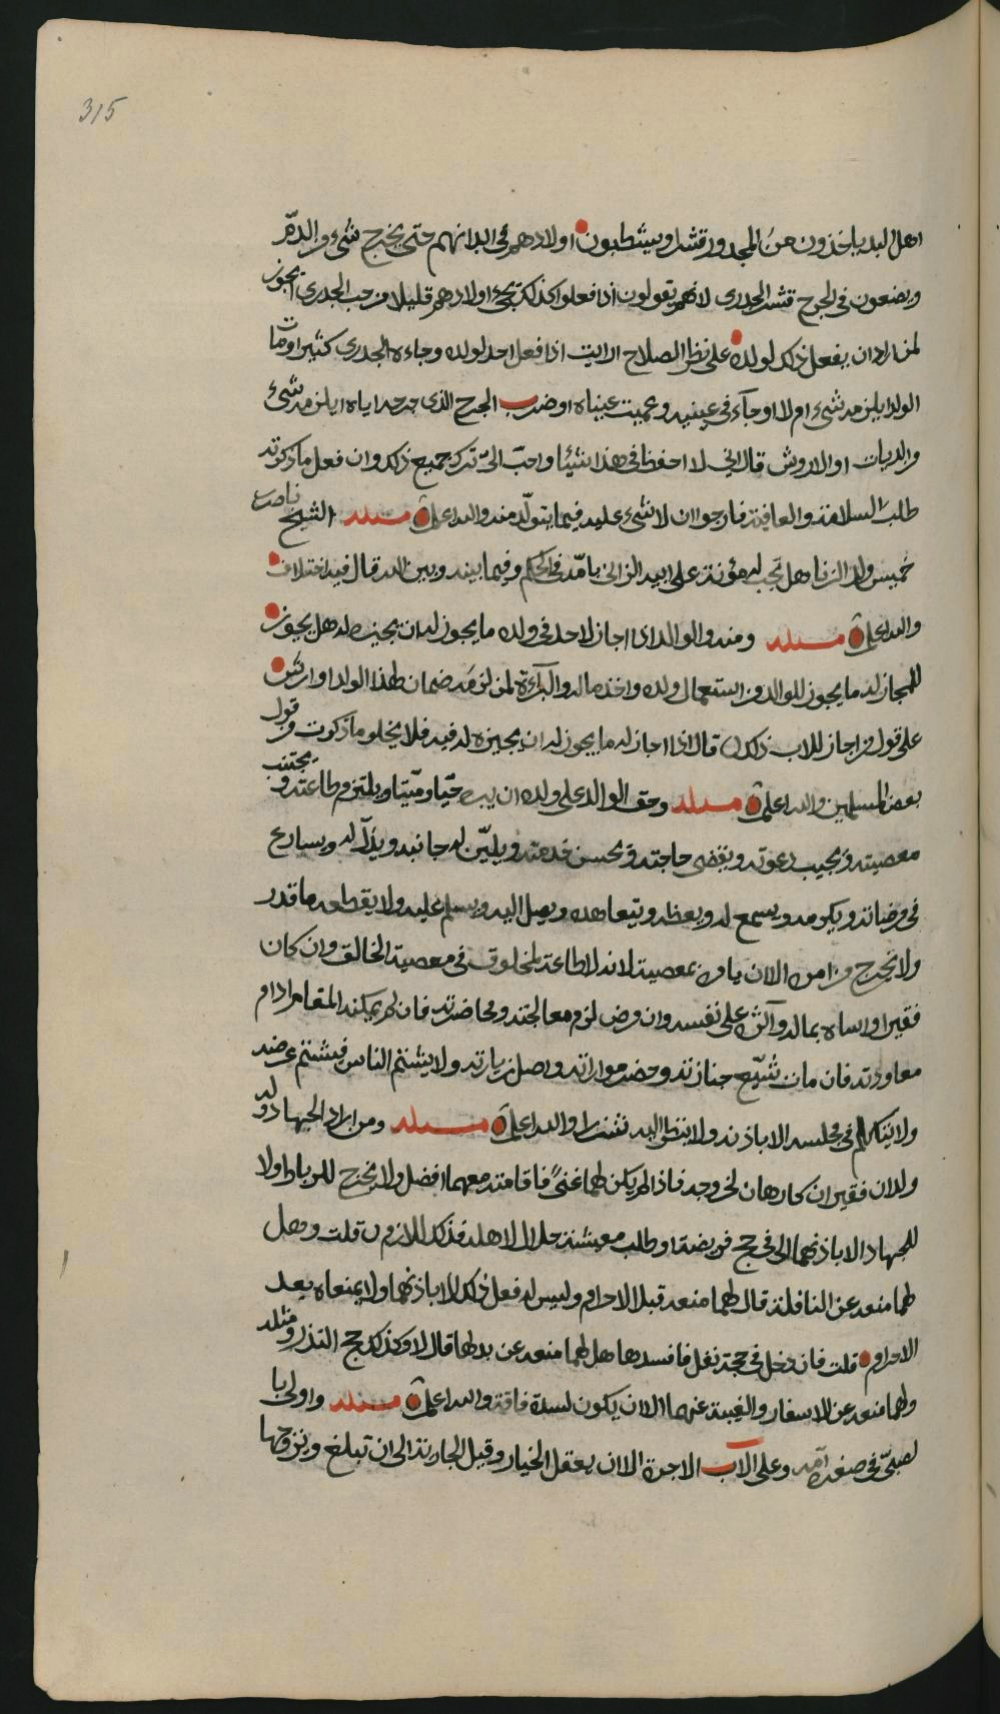 315
اهل البلد ياخذون من المجدور قشر ويشطبون اولادهم في ابدانهم حتى يخرج شيء من الدم
ويضعون في الجرح قشر الجدري لانهم يقولون اذا فعلوا كذلك تجيء اولادهم قليلا من حب الجدري ايجوز
لمن اراد ان يفعل ذلك لولده على نظر الصلاح ارايت اذا فعل احد لولده وجاءه الجدري كثيرا ومات
الولد ايلزمه شيء ام لا او جاء في عينيه وعميت عيناه او ضرب الجرح الذي جرحه اياه ايلزمه شيء
من الديات او الاروش قال اني لا احفظ في هذا شيئا واحب الي ترك جميع ذلك وان فعل ما ذكرته
طلب السلامة والعافية فارجو ان لا شيء عليه فيما يتولد منه والله اعلم مسئلة الشيخ ناصر بن
خميس ولد الزنا هل تجب له مؤنة على ابيه الزاني بامه في الحكم وفيما بينه وبين الله قال فيه اختلاف
والله اعلم مسئلة ومنه والوالد اذا اجاز لاحد في ولده ما يجوز له ان يجيزه له هل يجوز
للمجاز له ما يجوز للوالد من استعمال ولده واخذ ماله والبرآءة لمن لزمه ضمان لهذا الولد او ارش
على قول من اجاز للاب ذلك قال اذا اجاز له ما يجوز له ان يجيزه له فيه فلا يخلو ما ذكرت من قول
بعض المسلمين والله اعلم مسئلة وحق الوالد على ولده ان يبره حيا وميتا ويلتزم طاعته ويجتنب
معصيته ويجيب دعوته ويقضي حاجته ويحسن خدمته ويلين له جانبه ويذل له ويسارع
في مرضاته ويكرمه ويسمع له ويعظه ويتعاهده ويصل اليه ويسلم عليه ولا يقطعه ما قدر
ولا يخرج من امره الا ان يامره بمعصية لانه لا طاعة لمخلوق في معصية الخالق وان كان
فقيرا واساه بماله وآثره على نفسه وان مرض لزم معالجته ومحاضرته فان لم يمكنه المقام ادام
معاودته فان مات شيع جنازته وحضر مواراته واصل زيارته ولا يشتم الناس فيشتم عرضه
ولا يتكلم في مجلسه الا باذنه ولا ينظر اليه شزرا والله اعلم مسئلة ومن اراد الجهاد وله
والدان فقيران كارهان لخروجه فاذا لم يكن لهما غنى فاقامته معهما افضل ولا يخرج للرباط ولا
للجهاد الا باذنهما الا في حج فريضة او طلب معيشة حلال لاهله فذلك اللازم قلت وهل
لهما منعه عن النافلة قال لهما منعه قبل الاحرام وليس له فعل ذلك الا باذنهما ولا يمنعاه بعد
الاحرام قلت فان دخل في حجة نفل فافسدها هل لهما منعه عن بدلها قال لا وكذلك حج النذر ومثله
ولهما منعه عن الاسفار والغيبة عنهما الا ان يكون لسدة فاقة والله اعلم مسئلة واولى با
لصبي في صغره امه وعلى الآب الاجرة الا ان يعقل الخيار وقيل الجارية الى ان تبلغ وتزوجها